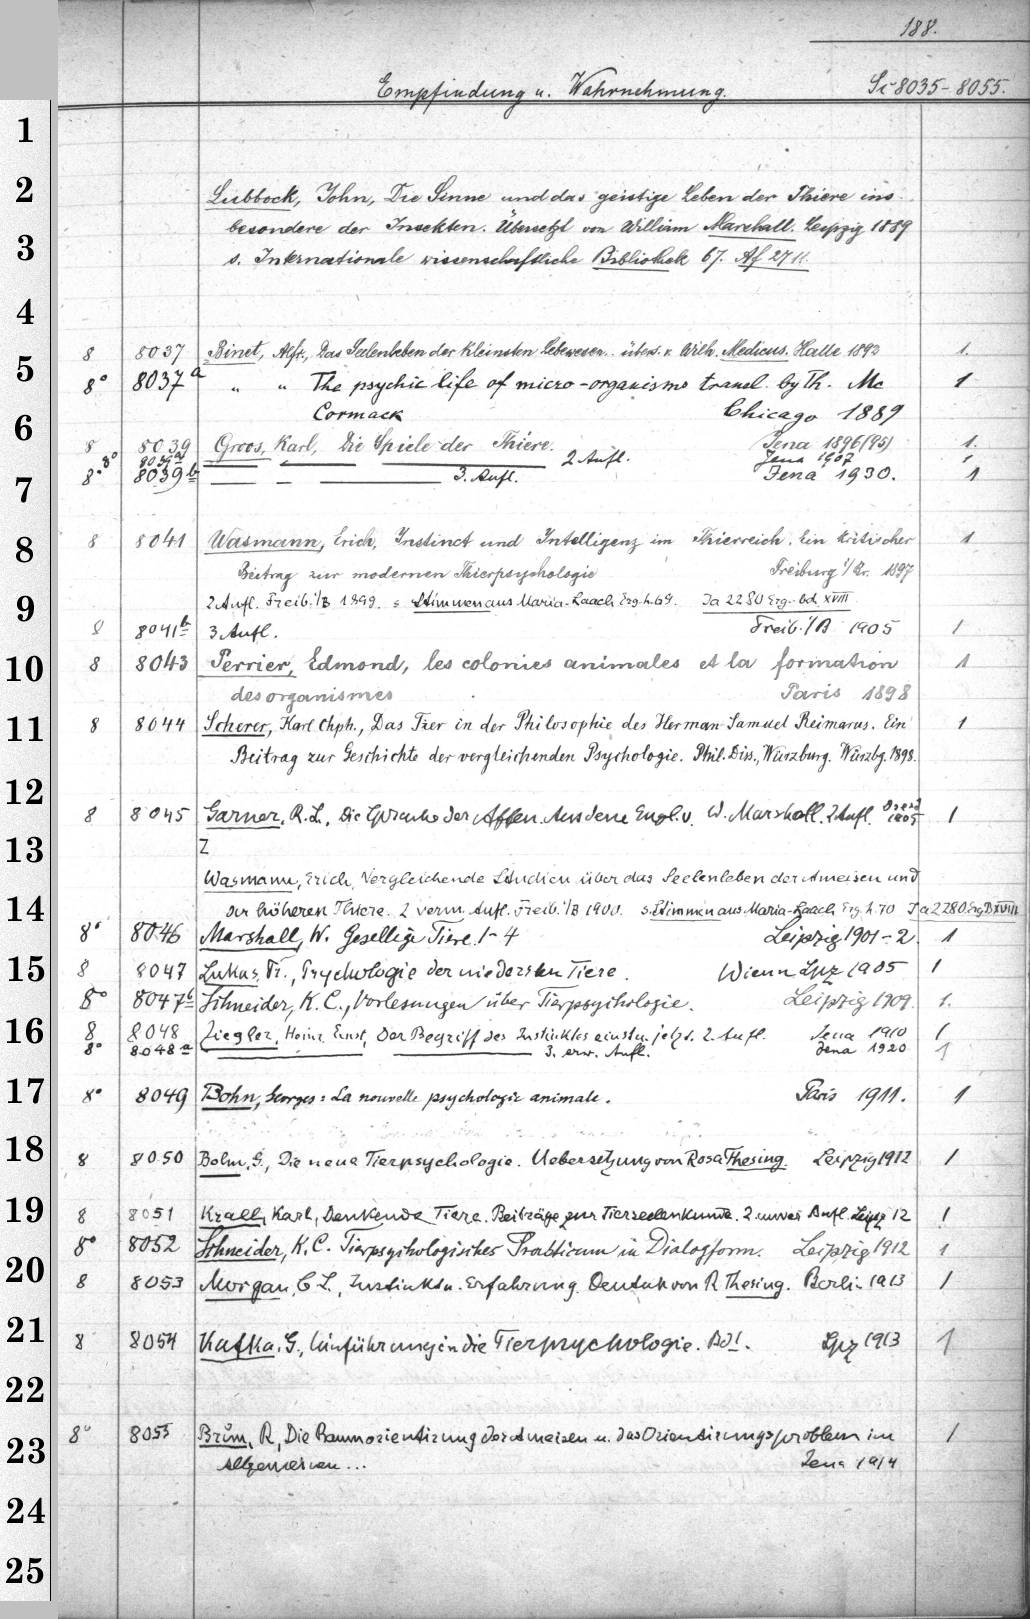 188.
Empfindung u. Wahrnehmung. Si 8035-8055.
1
2
Lubbock, John, Die Sinne und das geistige Leben der Thiere ins-
besondere der Insekten. Übersetzt von William Marshall. Leipzig 1889
3
s. Internationale wissenschaftliche Bibliothek 67. Af 2711.
4
8 8037 Binet, Alfr., Das Seelenleben der kleinsten Lebewesen. übers. v. Wilh. Medicus. Halle 1892 1.
5
8° 8037a " " The psychic life of micro-organisms transl. by Th. Mc 1
Cormack Chicago 1889
6
8 8039 Groos, Karl, Die Spiele der Thiere. Jena 1896(95) 1.
8° 8039a 2 Aufl. Jena 1907 1
7
8° 8039b 3. Aufl. Jena 1930. 1
8
8 8041 Wasmann, Erich, Instinct und Intelligenz im Thierreich. Ein kritischer 1
Beitrag zur modernen Thierpsychologie Freiburg i/Br. 1897
9
2 Aufl. Freib. i/B 1899. s. Stimmen aus Maria-Laach Erg.-h. 69. Ja 2280 Erg.-bd. XVIII
8 8041b 3 Aufl. Freib. i/B 1905 1
10
8 8043 Perrier, Edmond, les colonies animales et la formation 1
des organismes Paris 1898
11
8 8044 Scherer, Karl Chph., Das Tier in der Philosophie des Herman Samuel Reimarus. Ein 1
Beitrag zur Geschichte der vergleichenden Psychologie. Phil. Diss., Würzburg. Würzbg. 1898.
12
8 8045 Garner, R.L., Die Sprache der Affen. Aus dem Engl. v. W. Marshall. 2 Aufl. Dresd 1905 1
13
Z
Wasmann, Erich, Vergleichende Studien über das Seelenleben der Ameisen und
14
der höheren Thiere. 2 verm. Aufl. Freib. i/B 1900. s. Stimmen aus Maria-Laach Erg. h. 70 Ja 2280 Erg B XVIII
8° 8046 Marshall, W. Gesellige Tiere. 1-4 Leipzig 1901-2. 1
15
8 8047 Lukas, Fr., Psychologie der niedersten Tiere. Wien u Lpz 1905 1
8° 8047b Schneider, K. C., Vorlesungen über Tierpsychologie. Leipzig 1909. 1.
16
8 8048 Ziegler, Heinr. Ernst, Der Begriff des Instinktes einst u. jetzt. 2. Aufl. Jena 1910 1
8° 8048a 3. erw. Aufl. Jena 1920 1
17
8° 8049 Bohn, Georges: La nouvelle psychologie animale. Paris 1911. 1
18
8 8050 Bohn, G., Die neue Tierpsychologie. Uebersetzung von Rosa Thesing. Leipzig 1912 1
19
8 8051 Krall, Karl, Denkende Tiere. Beiträge zur Tierseelenkunde. 2 Aufl. Leipz 12 1
8° 8052 Schneider, K. C. Tierpsychologisches Practicum in Dialogform. Leipzig 1912 1
20
8 8053 Morgan, C L., Instinkt u. Erfahrung. Deutsch von R. Thesing. Berlin 1913 1
21
8 8054 Kafka, G., Einführung in die Tierpsychologie. Bd I. Lpz 1913 1
22
8° 8055 Brun, R, Die Raumorientirung der Ameisen u. das Orientirungsproblem im 1
23
Allgemeinen... Jena 1914
24
25